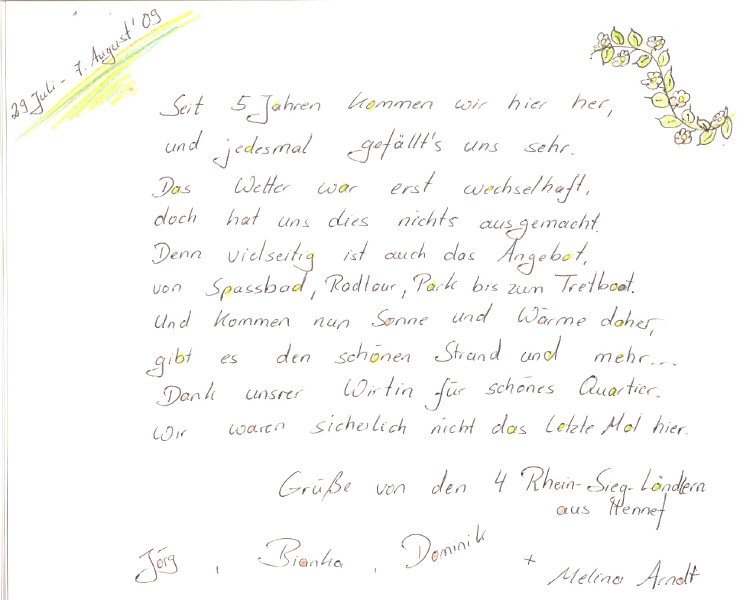 29 Juli - 7. August '09
Seit 5 Jahren kommen wir hier her,
und jedesmal gefällt's uns sehr.
Das Wetter war erst wechselhaft,
doch hat uns dies nichts ausgemacht.
Denn vielseitig ist auch das Angebot,
von Spassbad, Radtour, Park bis zum Tretboot.
Und kommen nun Sonne und Wärme daher,
gibt es den schönen Strand und mehr...
Dank unsrer Wirtin für schönes Quartier.
Wir waren sicherlich nicht das letzte Mal hier.
Grüße von den 4 Rhein-Sieg-Ländlern
aus Hennef
Jörg, Bianka, Dominik + Melina Arndt